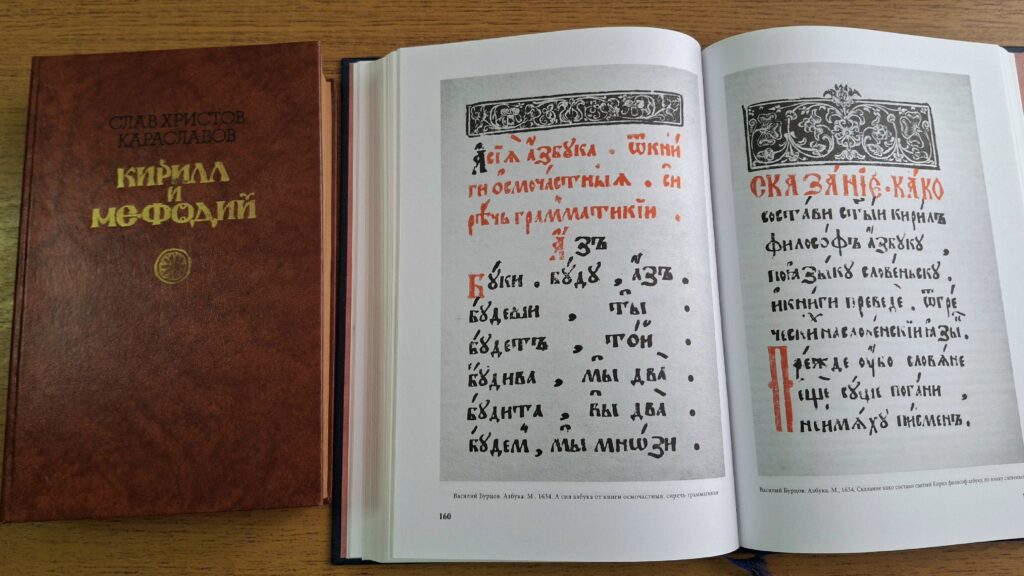 СЛАВ ХРИСТОВ
КАРАСЛАВОВ
КИРИЛЛ
И
МЕФОДИЙ
А҆сїѧ а҆́збꙋка . ѿ кни́
ги ѻ҆смоча́стныѧ . си
рѣ́чь грамма́тикїи .
А҆́зъ
Бꙋ́ки . бꙋ́дꙋ , а҆́зъ .
бꙋ́деши , ты̀ .
бꙋ́детъ , то́й .
бꙋ́дива , мы̀ два̀ .
бꙋ́дита , вы̀ два̀ .
бꙋ́дем , мы̀ мно́зи .
Василий Бурцов. Азбука. М., 1634. А сия азбука от книги осмочастныя, сиречь грамматикии
160
Сказа́нїе . ка́ко
состави ст҃ы́и кирилъ
філосо́фъ а҆́збꙋкꙋ ,
по ꙗ҆зы́кꙋ слове́ньскꙋ .
и҆ кни́ги преведѐ . ѿ гре́
чески на слове́нскїи ꙗ҆зы́
Пре́жде ᲂу҆́бо слова́не
є҆щѐ сꙋ́ще пога́ни ,
не и҆мѧ́хꙋ пи́сменъ .
Василий Бурцов. Азбука. М., 1634. Сказание како состави святый Кирил философ азбуку по языку